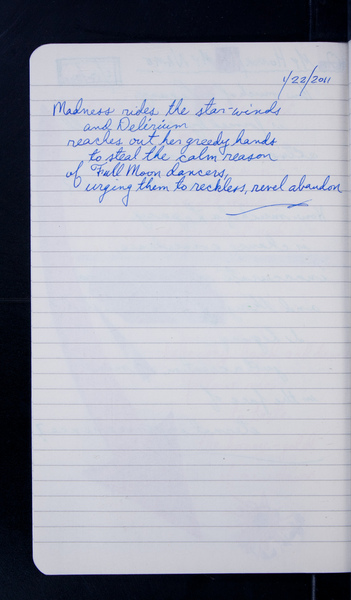 1/22/2011
Madness rides the star-winds
and Delirium
reaches out her greedy hands
to steal the calm reason
of Full Moon dancers,
urging them to reckless, revel abandon